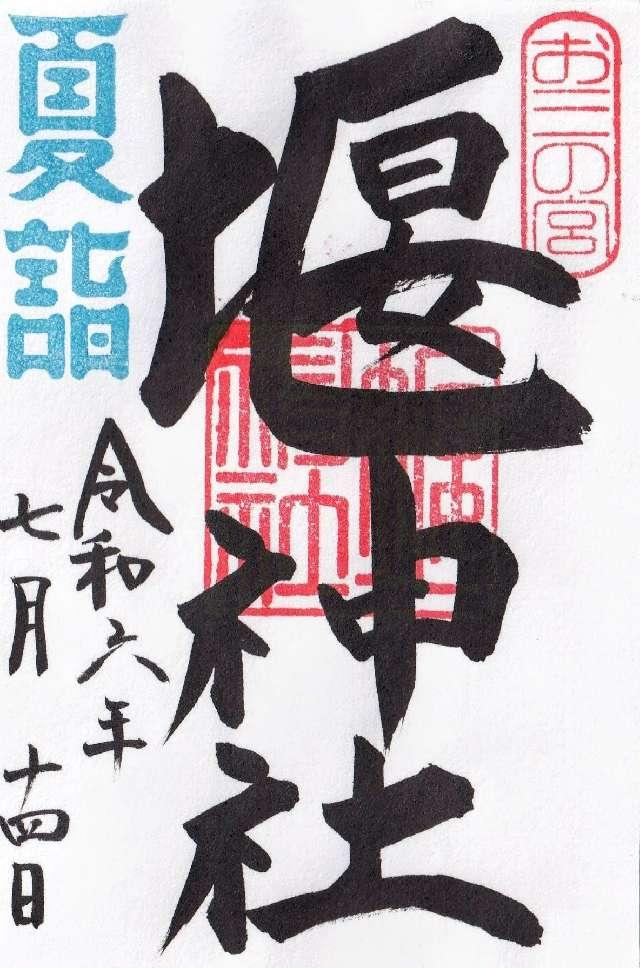 お三の宮
堰神社
夏詣
令和六年
七月十四日